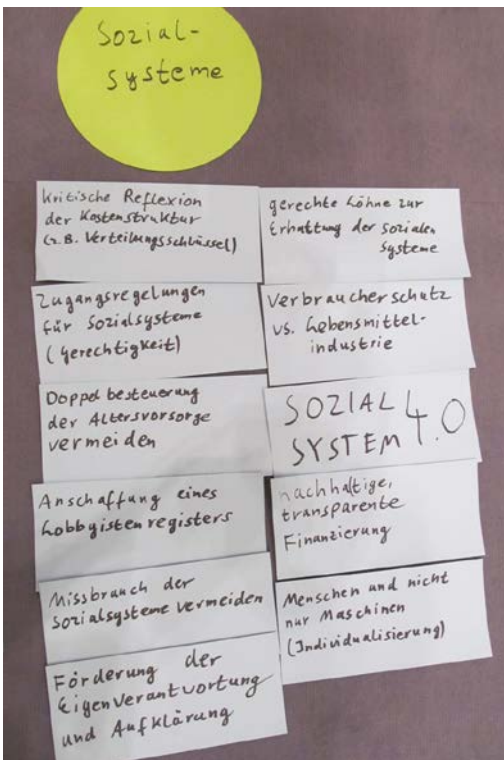 Sozial-
systeme
Kritische Reflexion
der Kostenstruktur
(z.B. Verteilungsschlüssel)
Zugangsregelungen
für Sozialsysteme
(Gerechtigkeit)
Doppelbesteuerung
der Altersvorsorge
vermeiden
Anschaffung eines
Lobbyistenregisters
Missbrauch der
Sozialsysteme vermeiden
Förderung der
Eigenverantwortung
und Aufklärung
gerechte Löhne zur
Erhaltung der sozialen
Systeme
Verbraucherschutz
vs. Lebensmittel-
industrie
SOZIAL
SYSTEM 4.0
nachhaltige,
transparente
Finanzierung
Menschen und nicht
nur Maschinen
(Individualisierung)